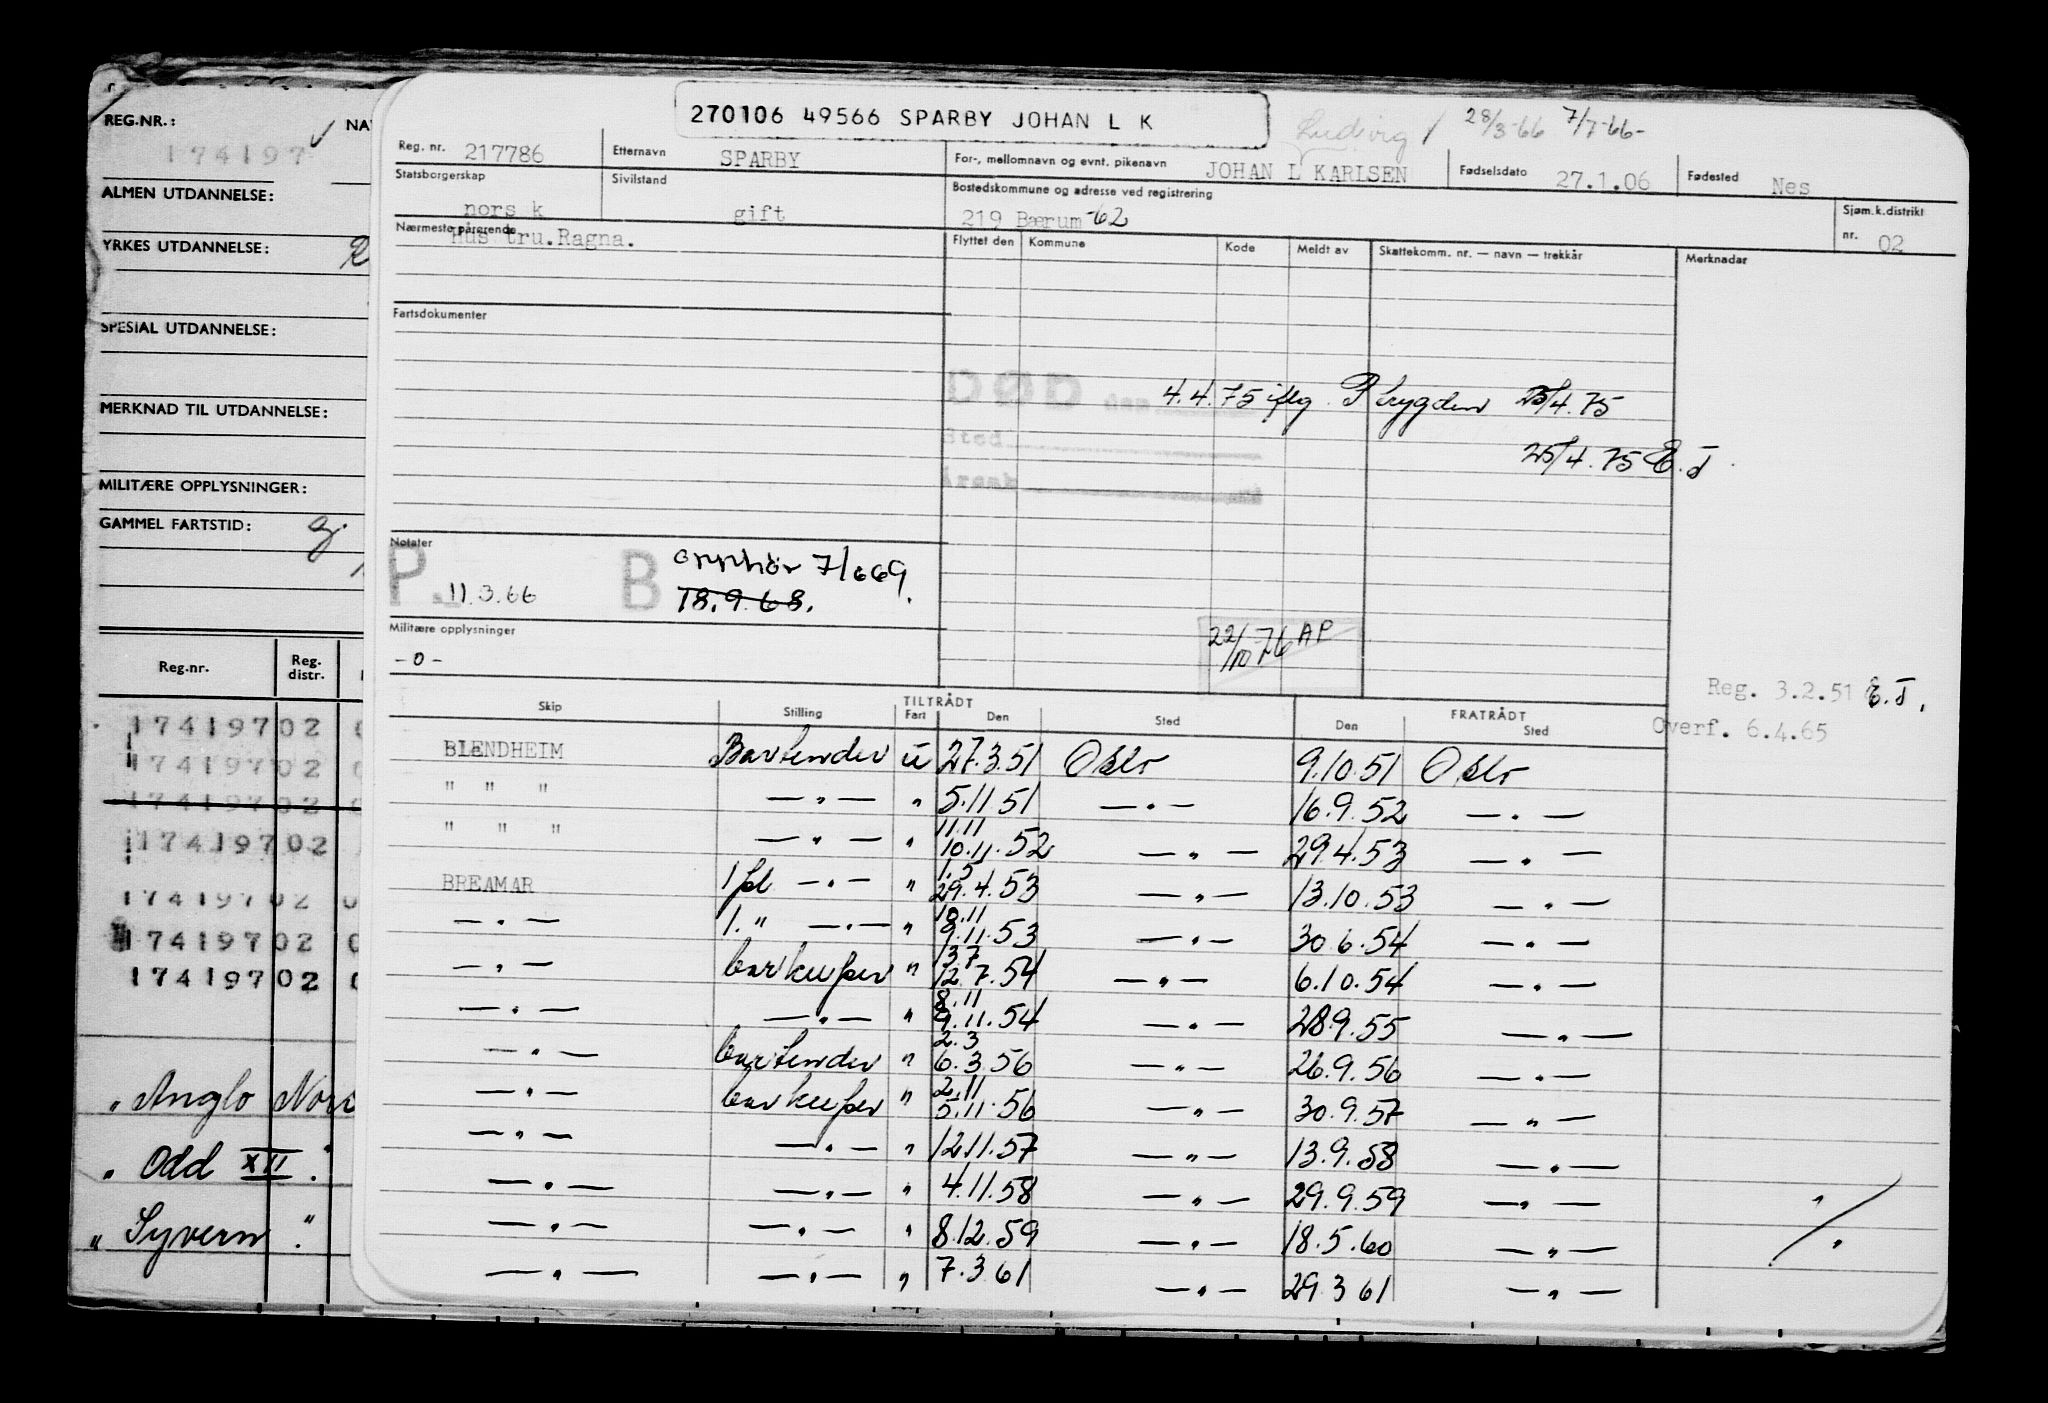 270106 49566 SPARBY JOHAN L K
Ludvig / 28/3-66 7/7-66-
Reg. nr. 217786 Etternavn SPARBY For-, mellomnavn og evnt. pikenavn JOHAN L KARLSEN Fødselsdato 27.1.06 Fødested Nes
Statsborgerskap norsk Sivilstand gift Bostedskommune og adresse ved registrering 219 Bærum -62 Sjøm.k.distrikt nr. 02
Nærmeste pårørende Hustru.Ragna.
Flyttet den Kommune Kode Meldt av Skattekomm. nr. — navn — trekkår Merknader
Fartsdokumenter
DØD den 4.4.75 iflg P trygden 25/4.75
Sted
25/4.75 E.J.
Årsak
Notater
P. 11.3.66 B opphør 7/669.
18.9.68.
Militære opplysninger
22/10 76 AP
-0-
Reg. 3.2.51 E.J.
Overf. 6.4.65
TILTRÅDT FRATRÅDT
Skip Stilling Fart Den Sted Den Sted
BLENDHEIM Bartender u 27.3.51 Oslo 9.10.51 Oslo
" " " — " — " 5.11 51 — " — 16.9.52 — " —
" " " — " — " 11.11
10.11.52 — " — 29.4.53 — " —
BREAMAR 1 — " — " 1.5
29.4.53 — " — 13.10.53 — " —
— " — 1. " — " — " 10.11
9.11.53 — " — 30 6.54 — " —
— " — barkeeper " 13 7
12.7.54 — " — 6.10.54 — " —
— " — — " — " 8.11
9.11.54 — " — 28.9.55 — " —
— " — bartender " 2.3
6.3.56 — " — 26.9.56 — " —
— " — barkeeper " 2.11
5.11.56 — " — 30.9.57 — " —
— " — — " — " 12.11.57 — " — 13.9.58 — " —
— " — — " — " 4.11.58 — " — 29.9.59 — " —
— " — — " — " 8.12.59 — " — 18.5.60 — " —
— " — — " — " 7.3 61 — " — 29 3 61 — " —
REG.NR.: 174197
ALMEN UTDANNELSE:
YRKES UTDANNELSE:
SPESIAL UTDANNELSE:
MERKNAD TIL UTDANNELSE:
MILITÆRE OPPLYSNINGER:
GAMMEL FARTSTID:
Reg.nr. Reg. distr.
174197 02
174197 02
174197 02
174197 02
174197 02
174197 02
174197 02
" Anglo
" Odd XII "
" Syvern "